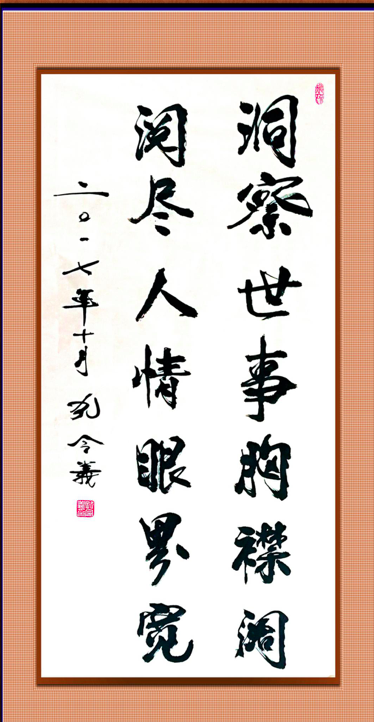 洞察世事胸襟阔
阅尽人情眼界宽
二〇一七年十月 孔令義